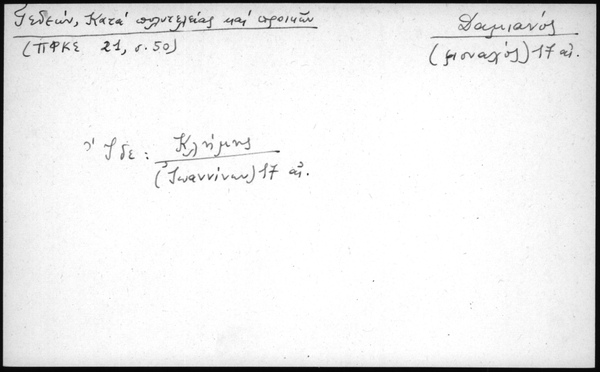 Γεδεών, Κατά πολυτελείας καί προικῶν
(ΠΦΚΣ 21, σ. 50)
Δαμιανός
(μοναχός) 17 αἰ.
Ἴδε: Κλήμης
(Ἰωαννίνων) 17 αἰ.